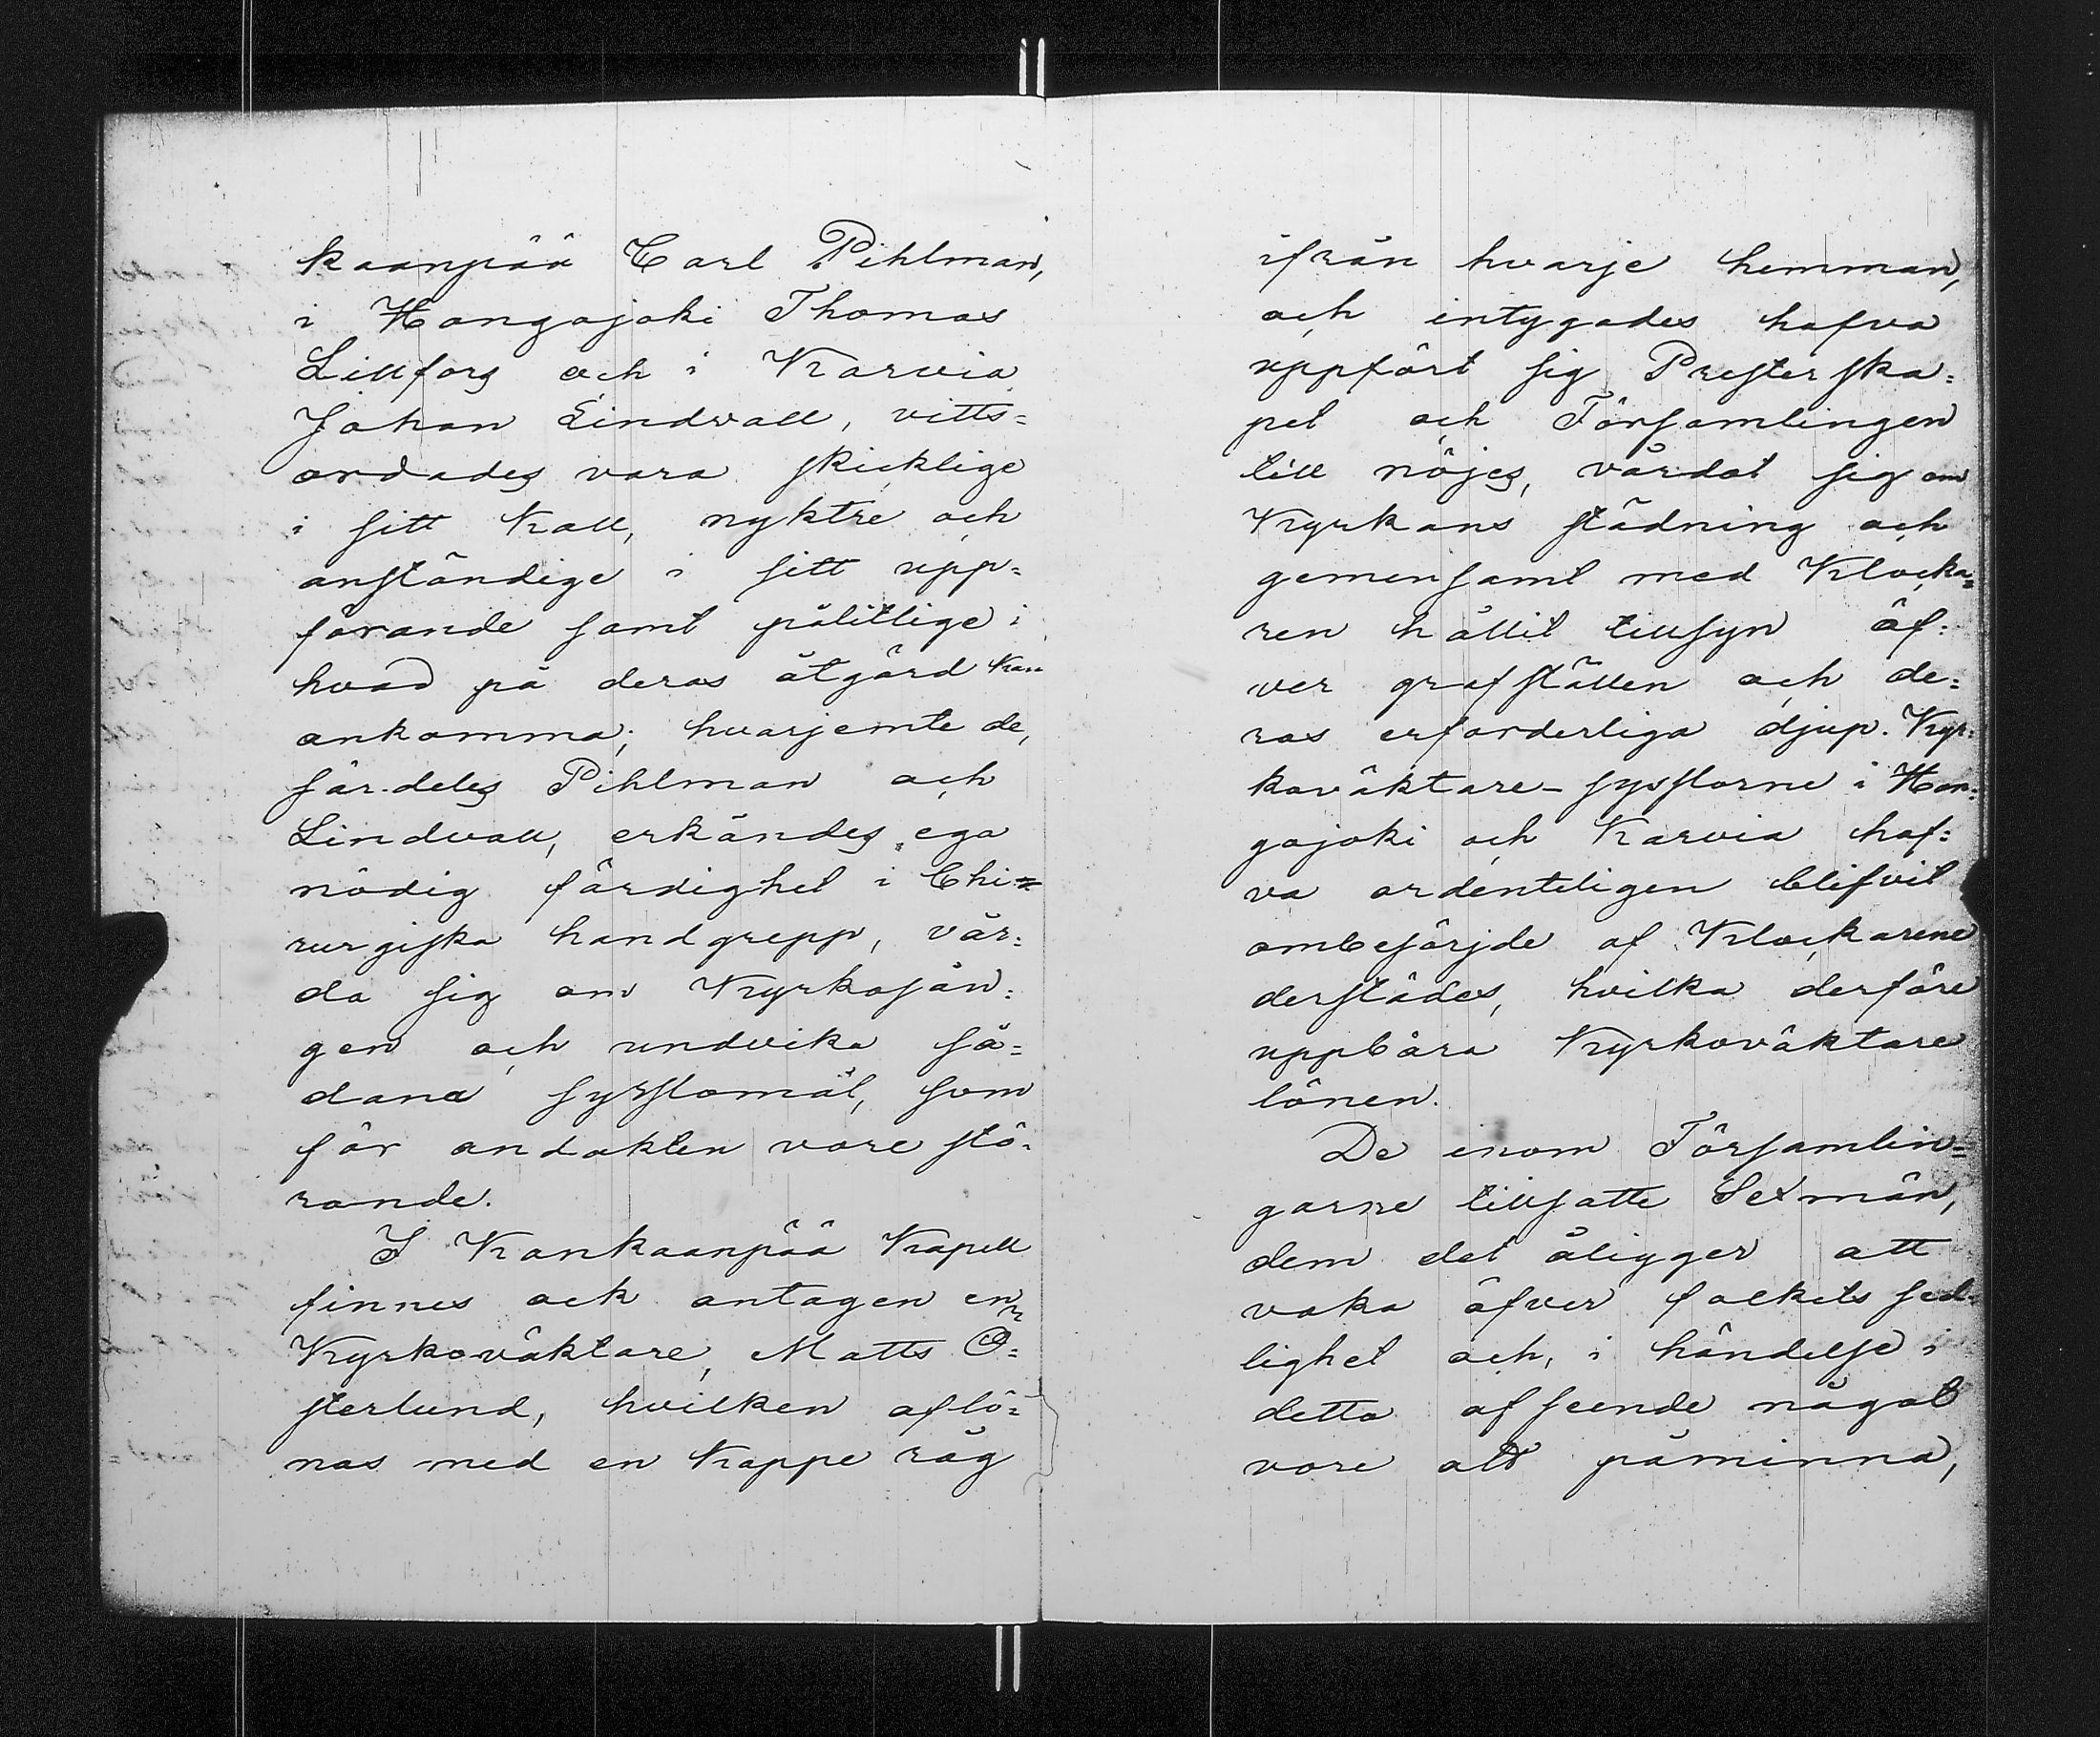 kaanpää Carl Pihlman,
i Hongojoki Thomas
Lillfors och i Karvia
Johan Lindvall, vitts=
ordades vara skicklige
i sitt Kall, nyktre och
anständige i sitt upp=
förande samt pålitlige i
hvad på deras åtgärd kan
ankomma; hvarjemte de,
särdeles Pihlman och
Lindvall, erkändes ega
nödig färdighet i Chi=
rurgiska handgrepp, vår=
da sig om Kyrkosån=
gen och undvika så=
dana sysslomål, som
för andakten vore stö=
rande.
I Kankaanpää Kapell
finnes ock antagen en
Kyrkoväktare, Matts Ö=
sterlund, hvilken aflö=
nas med en Kappe råg
ifrån hvarje hemman,
och intygades hafva
uppfört sig Presterska=
pet och Församlingen
till nöjes, vårdat sig om
Kyrkans städning och
gemensamt med Klocka=
ren hållit tillsyn öf=
ver grafställen och de=
ras erforderliga djup. Kyr=
koväktare-sysslorne i Hon=
gojoki och Karvia haf=
va ordenteligen blifvit
ombesörjde af Klockarene
derstädes, hvilka derföre
uppbära Kyrkoväktare
lönen.
De inom Församlin=
garne tillsatte Sexmän,
dem det åligger att
vaka öfver folkets sed=
lighet och, i händelse i
detta afseende något
vore att påminna,